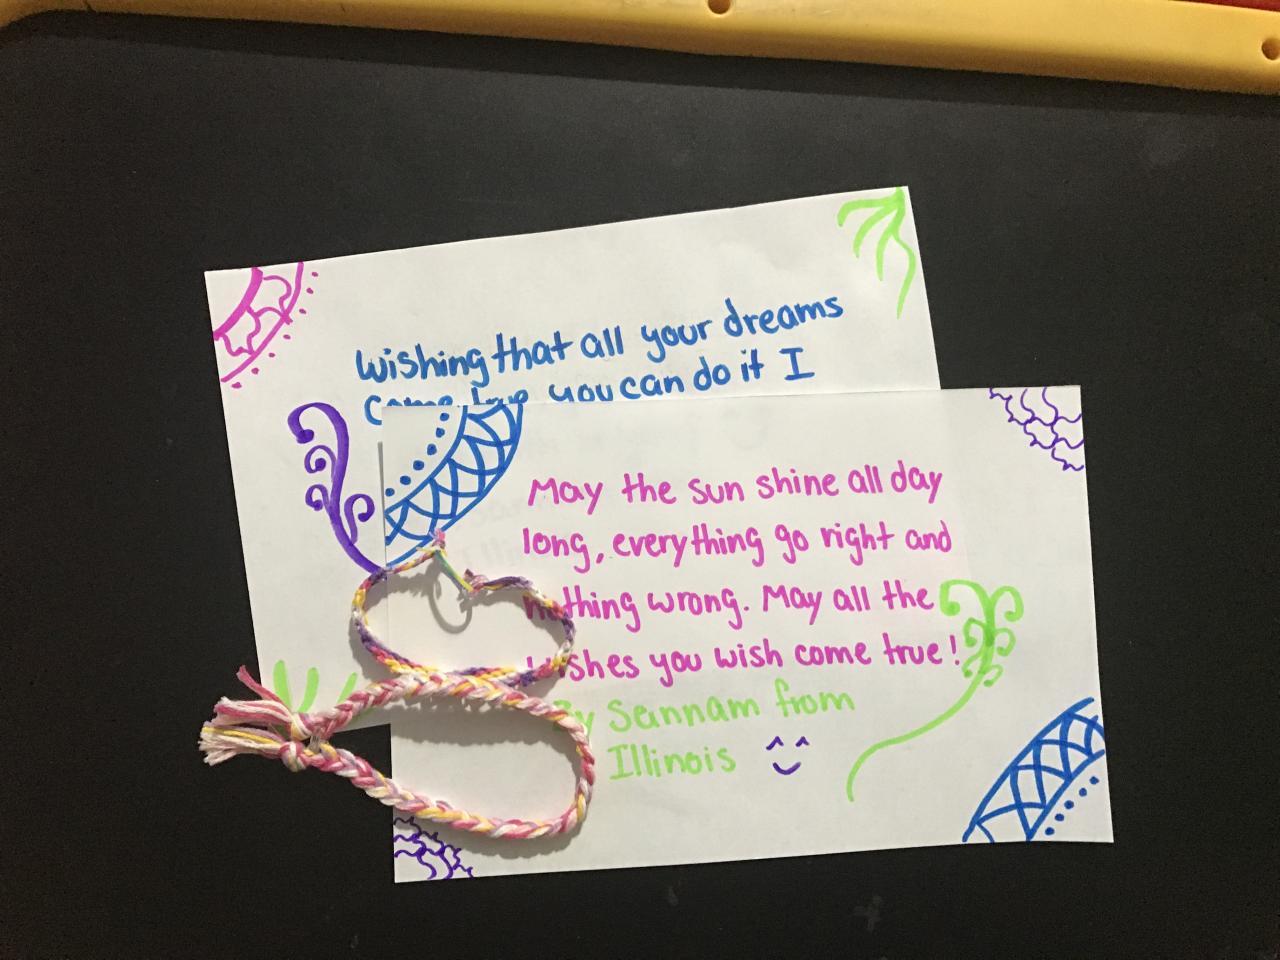 Wishing that all your dreams
come true you can do it I
May the sun shine all day
long, everything go right and
nothing wrong. May all the
wishes you wish come true!
By Sannam from
Illinois